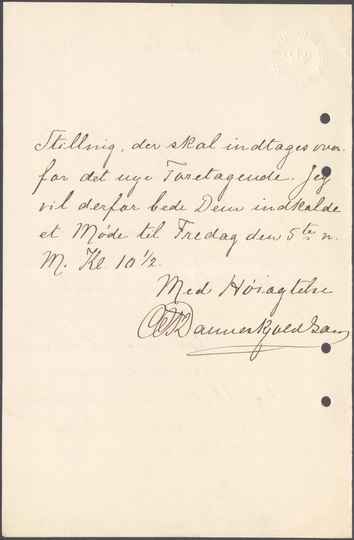 Stilling, der skal indtages over
for det nye Foretagende. Jeg
vil derfor bede Dem indkalde
et Møde til Fredag den 5te n.
M. Kl 10 1/2.
Med Høiagtelse
Danneskjold Sam